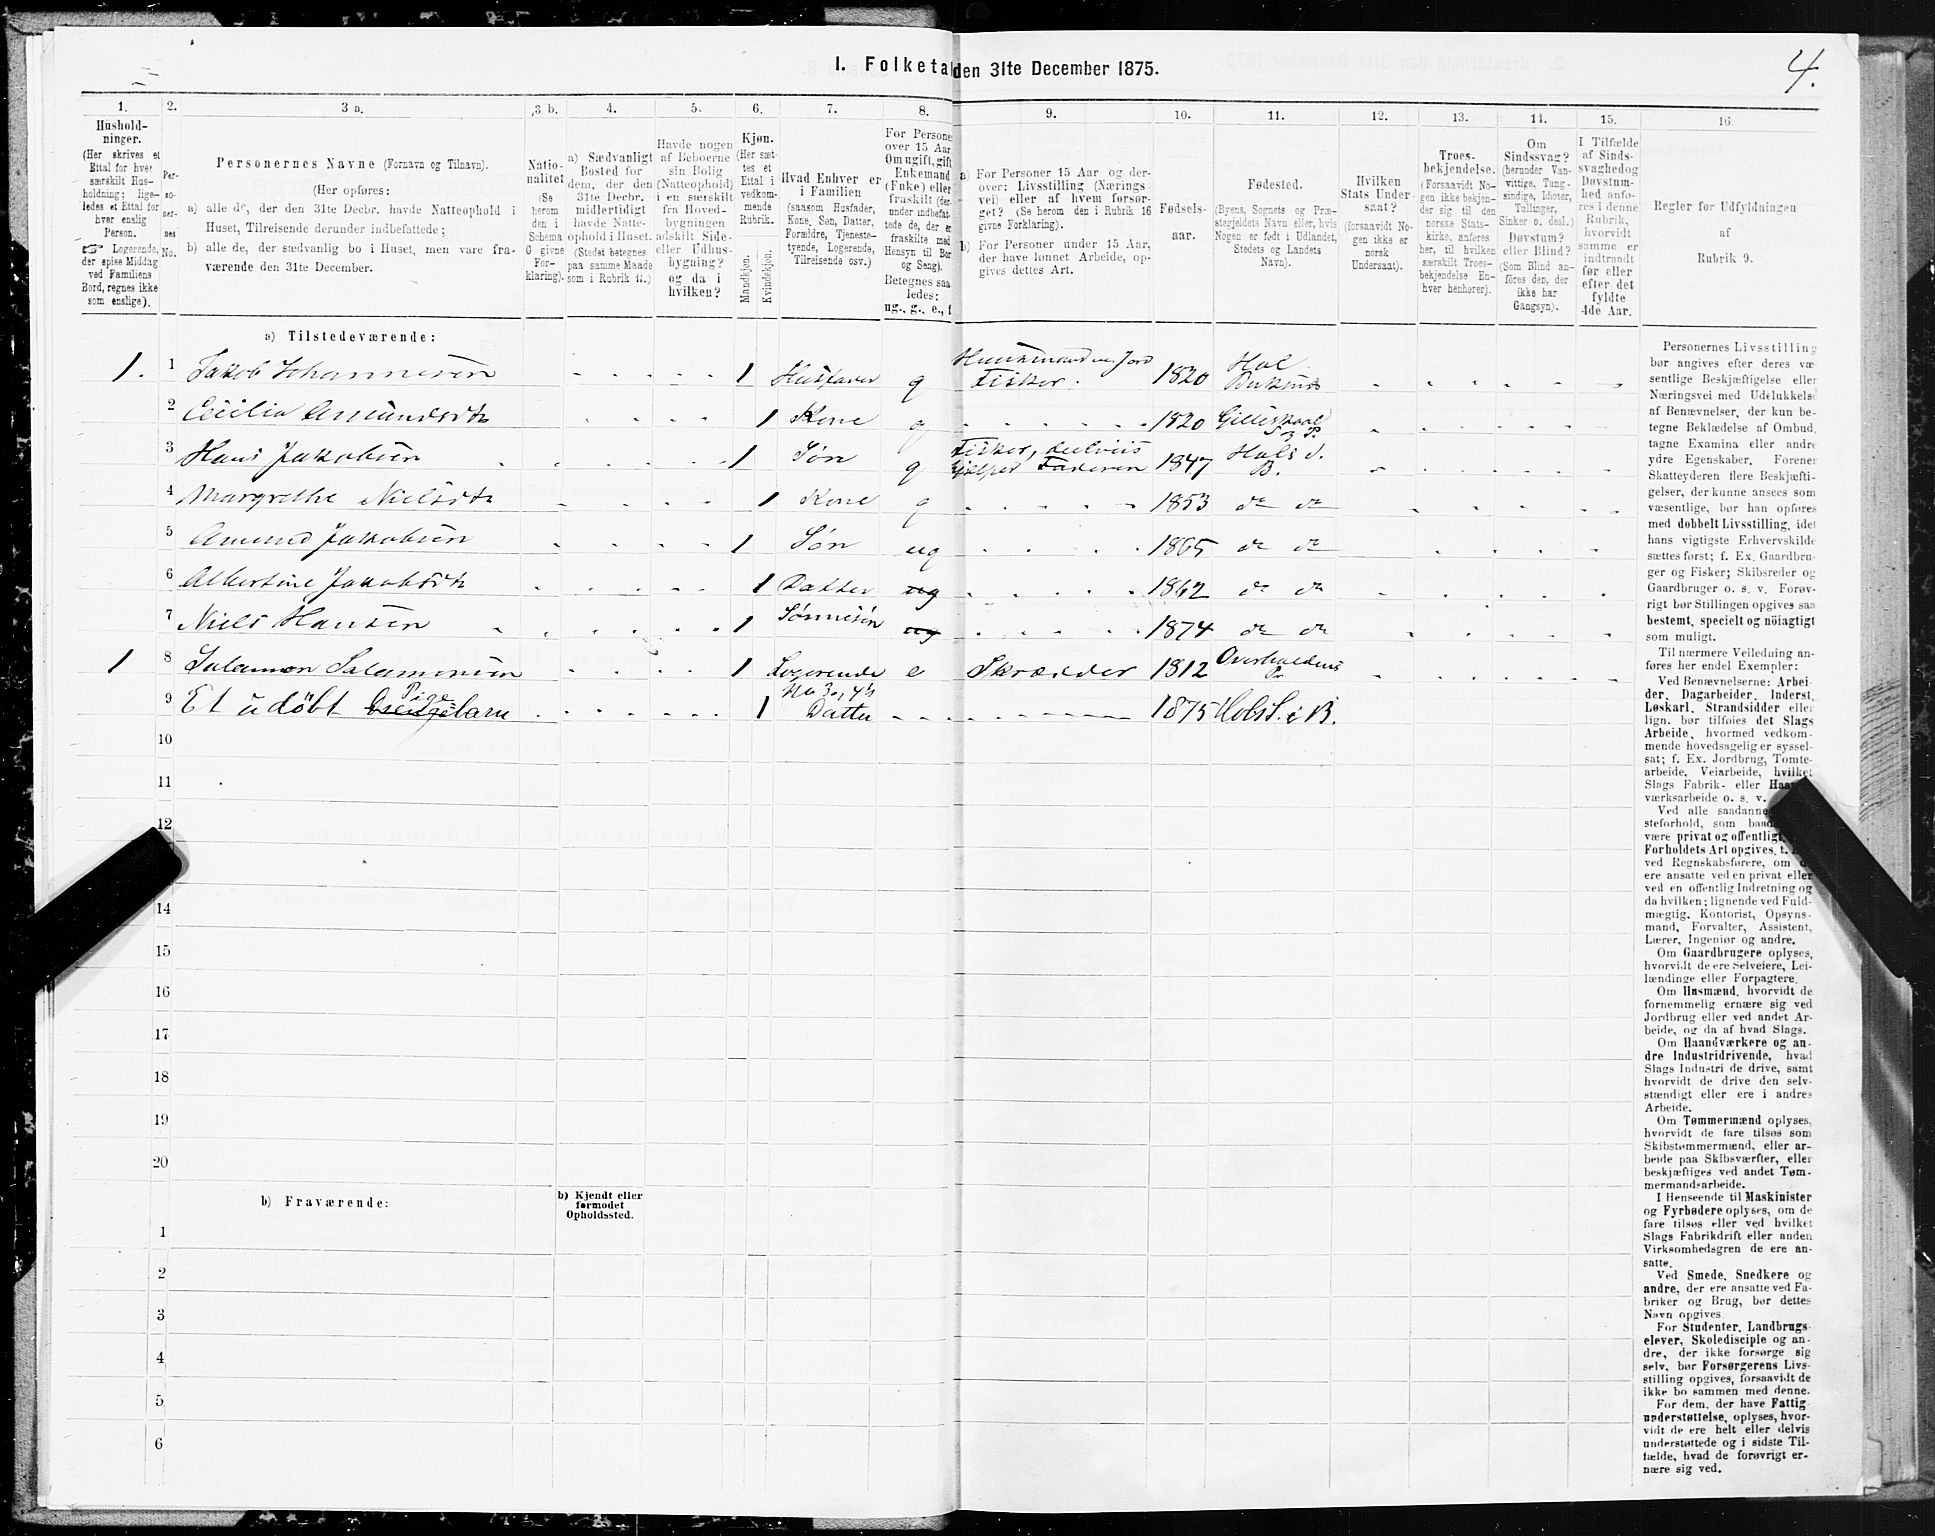 I. Folketal den 31te December 1875.
4.
1. 2. 3 a. 3 b. 4. 5. 6. 7. 8. 9. 10. 11. 12. 13. 14. 15. 16.
Hushold-
ninger.
(Her skrives et
Ettal for hver
særskilt Hus-
holdning; lige-
ledes et Ettal for
hver enslig
Person.
☞ Logerende,
der spise Middag
ved Familiens
Bord, regnes ikke
som enslige).
Per-
so-
ner-
nes
No.
Personernes Navne (Fornavn og Tilnavn).
(Her opføres:
a) alle de, der den 31te Decbr. havde Natteophold i
Huset, Tilreisende derunder indbefattede;
b) alle de, der sædvanlig bo i Huset, men vare fra-
værende den 31te December.
Natio-
nalitet
(Se
herom
den i
Schema
O givne
For-
klaring).
a) Sædvanligt
Bosted for
dem, der den
31te Decbr.
midlertidigt
havde Natte-
ophold i Huset.
(Stedet betegnes
paa samme Maade
som i Rubrik 11.)
Havde nogen
af Beboerne
sin Bolig
(Natteophold)
i en særskilt
fra Hoved-
bygningen
adskilt Side-
eller Udhus-
bygning?
og da i
hvilken?
Kjøn.
(Her sæt-
tes et
Ettal i
vedkom-
mende
Rubrik.
Mandkjøn.
Kvindekjøn.
Hvad Enhver er
i Familien
(saasom Husfader,
Kone, Søn, Datter,
Forældre, Tjeneste-
tyende, Logerende,
Tilreisende osv.)
For Persone
over 15 Aar
Om ugift, gift
Enkemand
(Enke) eller
fraskilt (der-
under indbefat-
tede de, der er
fraskilte med
Hensyn til Bor
og Seng).
Betegnes saa
ledes:
ug., g., e., f
a) For Personer 15 Aar og der-
over: Livsstilling (Nærings-
vei) eller af hvem forsør-
get? (Se herom den i Rubrik 16
givne Forklaring).
b) For Personer under 15 Aar,
der have lønnet Arbeide, op-
gives dettes Art.
Fødsels-
aar.
Fødested.
(Byens, Sognets og Præ-
stegjeldets Navn eller, hvis
Nogen er født i Udlandet,
Stedets og Landets
Navn).
Hvilken
Stats Under-
saat?
(forsaavidt No-
gen ikke er
norsk
Undersaat).
Troes-
bekjendelse.
(Forsaavidt No-
gen ikke bekjen-
der sig til den
norske Stats-
kirke, anføres
her, til hvilken
særskilt Troes-
bekjendelse En-
hver henhører).
Om
Sindssvag?
(herunder Van-
vittige, Tung-
sindige, Idioter,
Tullinger,
Sinker o. desl.)
Døvstum?
eller Blind?
(Som Blind an-
føres den, der
ikke har
Gangsyn).
I Tilfælde
af Sinds-
svaghed og
Døvstum-
hed anfø-
res i denne
Rubrik,
hvorvidt
samme er
indtraadt
før eller
efter det
fyldte
4de Aar.
Regler for Udfyldningen
af
Rubrik 9.
a) Tilstedeværende:
1. 1 Jakob Johannesen 1 Husfader g Huusmand m. Jord Fisker. 1820 Hol Buksnes
2 Cecilia Amundsdtr 1 Kone g 1820 Gilleskaal S. & P.
3 Hans Jakobsen 1 Søn g Fisker, delviis hjælper Faderen 1847 Hols S. B.
4 Margrethe Nielsdtr 1 Kone g 1853 do do
5 Amund Jakobsen 1 Søn ug 1865 do do
6 Albertine Jakobsdtr 1 Datter ug 1862 do do
7 Niels Hansen 1 Sønnesøn ug 1874 do do
1 8 Salamon Salamonsen 1 Logerende e Skrædder 1812 Overhaldens P.
9 Et udøbt Pigebarn 1 No 3 og 4's Datter 1875 Hols S. i B.
10
11
12
14
15
16
17
18
19
20
b) Fraværende:
b) Kjendt eller
formodet
Opholdssted.
1
2
3
4
5
6
Personernes Livsstilling
bør angives efter deres væ-
sentlige Beskjæftigelse eller
Næringsvei med Udelukkelse
af Benævnelser, der kun be-
tegne Beklædelse af Ombud,
tagne Examina eller andre
ydre Egenskaber. Forener
Skatteyderen flere Beskjæfti-
gelser, der kunne ansees som
væsentlige, bør han opføres
med dobbelt Livsstilling, idet
hans vigtigste Erhvervskilde
sættes først; f. Ex. Gaardbru-
ger og Fisker; Skibsreder og
Gaardbruger o. s. v. Forøv-
rigt bør Stillingen opgives saa
bestemt, specielt og nøiagtigt
som muligt.
Til nærmere Veiledning an-
føres her endel Exempler:
Ved Benævnelserne: Arbei-
der, Dagarbeider, Inderst,
Løskarl, Strandsidder eller
lign. bør tilføies det Slags
Arbeide, hvormed vedkom-
mende hovedsagelig er syssel-
sat; f. Ex. Jordbrug, Tomte-
arbeide, Veiarbeide, hvilket
Slags Fabrik- eller
værksarbeide o. s. v.
Ved alle saadanne
steforhold, som
være privat og offentligt,
Forholdets Art opgives,
ved Regnskabsførere, om
ere ansatte ved en privat eller
ved en offentlig Indretning og
da hvilken; lignende ved Fuld-
mægtig, Kontorist, Opsyns-
mand, Forvalter, Assistent,
Lærer, Ingeniør og andre.
Om Gaardbrugere oplyses,
hvorvidt de ere Selveiere, Lei-
lændinge eller Forpagtere.
Om Husmænd, hvorvidt de
fornemmelig ernære sig ved
Jordbrug eller ved andet Ar-
beide, og da af hvad Slags.
Om Haandværkere og an-
dre Industridrivende, hvad
Slags Industri de drive, samt
hvorvidt de drive den selv-
stændigt eller ere i andres
Arbeide.
Om Tømmermænd oplyses,
hvorvidt de fare tilsøs som
Skibstømmermænd, eller ar-
beide paa Skibsværfter, eller
beskjæftiges ved andet Tøm-
mermandsarbeide.
I Henseende til Maskinister
og Fyrbødere oplyses, om de
fare tilsøs eller ved hvilket
Slags Fabrikdrift eller anden
Virksomhedsgren de ere an-
satte.
Ved Smede, Snedkere og
andre, der ere ansatte ved Fa-
briker og Brug, bør dettes
Navn opgives
For Studenter, Landbrugs-
elever, Skoledisciple og an-
dre, der ikke forsørge sig
selv, bør Forsørgerens Livs-
stilling opgives, forsaavidt de
ikke bo sammen med denne.
For dem, der have Fattig-
understøttelse, oplyses, hvor-
vidt de ere helt eller delvis
understøttede og i sidste Til-
fælde, hvad de forøvrigt er-
nære sig ved.